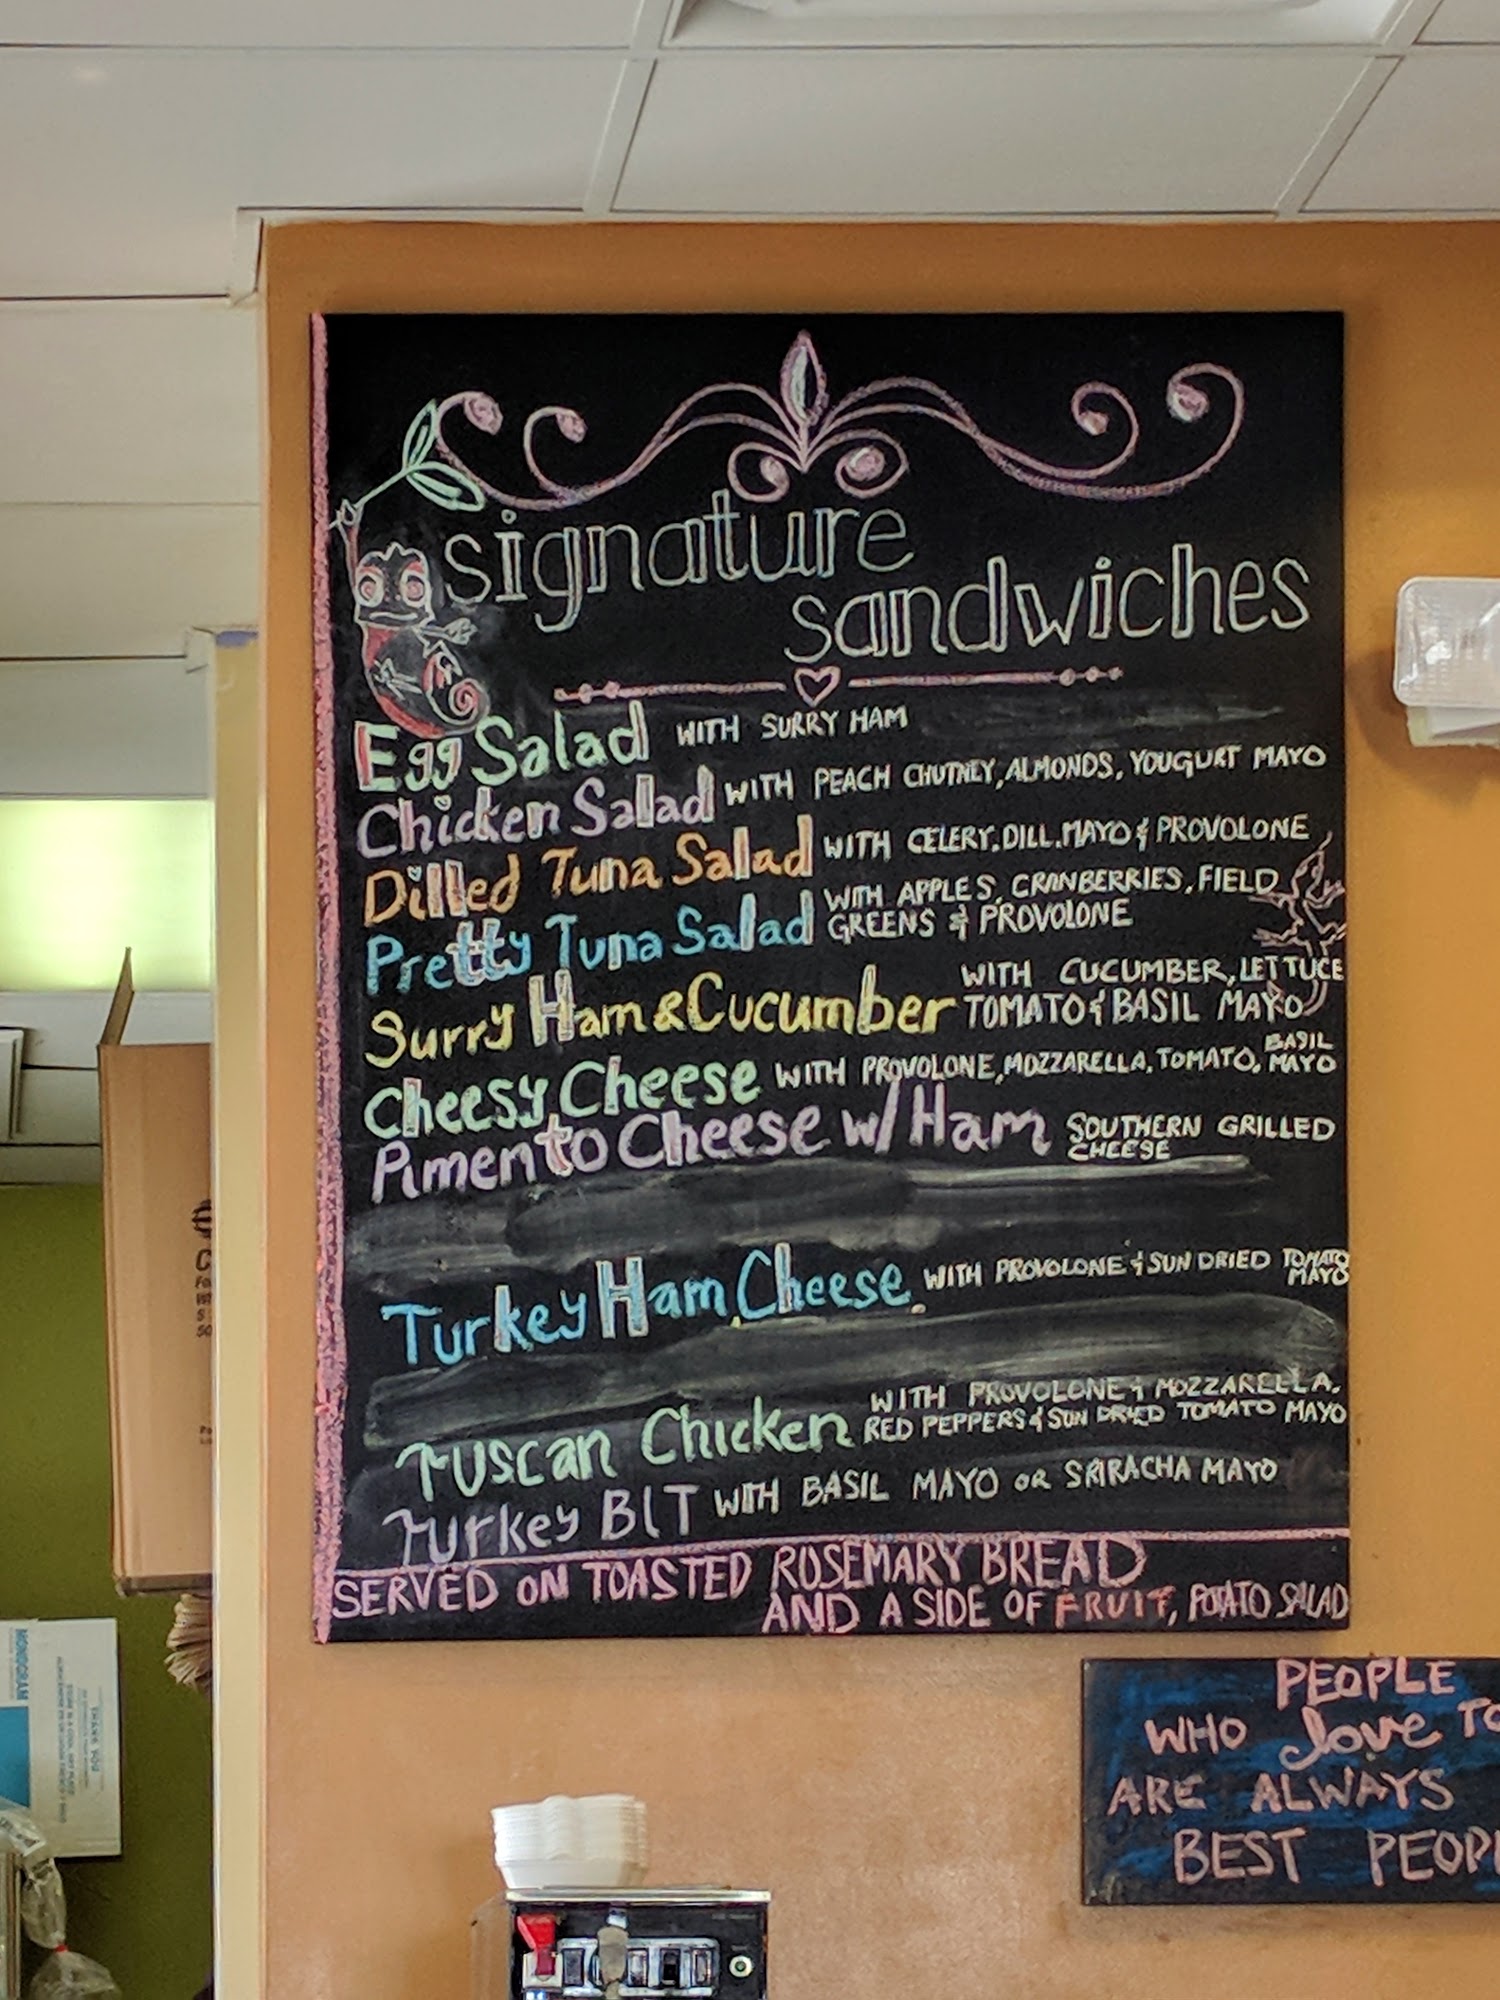 signature
sandwiches
Egg Salad WITH SURRY HAM
Chicken Salad WITH PEACH CHUTNEY, ALMONDS, YOUGURT MAYO
Dilled Tuna Salad WITH CELERY, DILL, MAYO & PROVOLONE
Pretty Tuna Salad WITH APPLES, CRANBERRIES, FIELD
GREENS & PROVOLONE
Surry Ham & Cucumber WITH CUCUMBER, LETTUCE
TOMATO & BASIL MAYO
Cheesy Cheese WITH PROVOLONE, MOZZARELLA, TOMATO, BASIL
MAYO
Pimento Cheese w/ Ham SOUTHERN GRILLED
CHEESE
Turkey Ham Cheese WITH PROVOLONE & SUN DRIED TOMATO
MAYO
Tuscan Chicken WITH PROVOLONE & MOZZARELLA,
RED PEPPERS & SUN DRIED TOMATO MAYO
Turkey BLT WITH BASIL MAYO OR SRIRACHA MAYO
SERVED ON TOASTED ROSEMARY BREAD
AND A SIDE OF FRUIT, POTATO SALAD
PEOPLE
WHO love TO
ARE ALWAYS
BEST PEOPL
MONOGRAM
THANK YOU